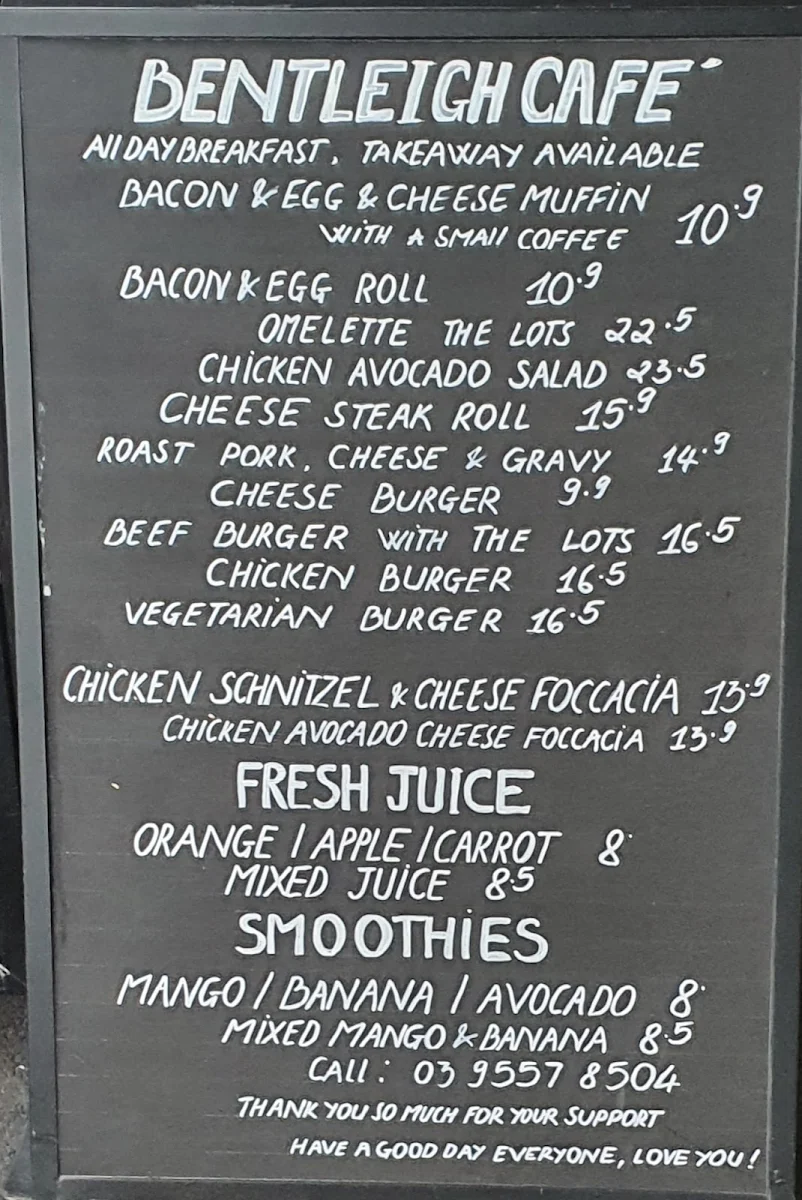 BENTLEIGH CAFE'
All DAY BREAKFAST, TAKEAWAY AVAILABLE
BACON & EGG & CHEESE MUFFIN
WITH A SMAll COFFEE 10.9
BACON & EGG ROLL 10.9
OMELETTE THE LOTS 22.5
CHICKEN AVOCADO SALAD 23.5
CHEESE STEAK ROLL 15.9
ROAST PORK, CHEESE & GRAVY 14.9
CHEESE BURGER 9.9
BEEF BURGER WITH THE LOTS 16.5
CHICKEN BURGER 16.5
VEGETARIAN BURGER 16.5
CHICKEN SCHNITZEL & CHEESE FOCCACIA 13.9
CHICKEN AVOCADO CHEESE FOCCACIA 13.9
FRESH JUICE
ORANGE / APPLE / CARROT 8.
MIXED JUICE 8.5
SMOOTHIES
MANGO / BANANA / AVOCADO 8.
MIXED MANGO & BANANA 8.5
CAll: 03 9557 8504
THANK YOU SO MUCH FOR YOUR SUPPORT
HAVE A GOOD DAY EVERYONE, LOVE YOU!